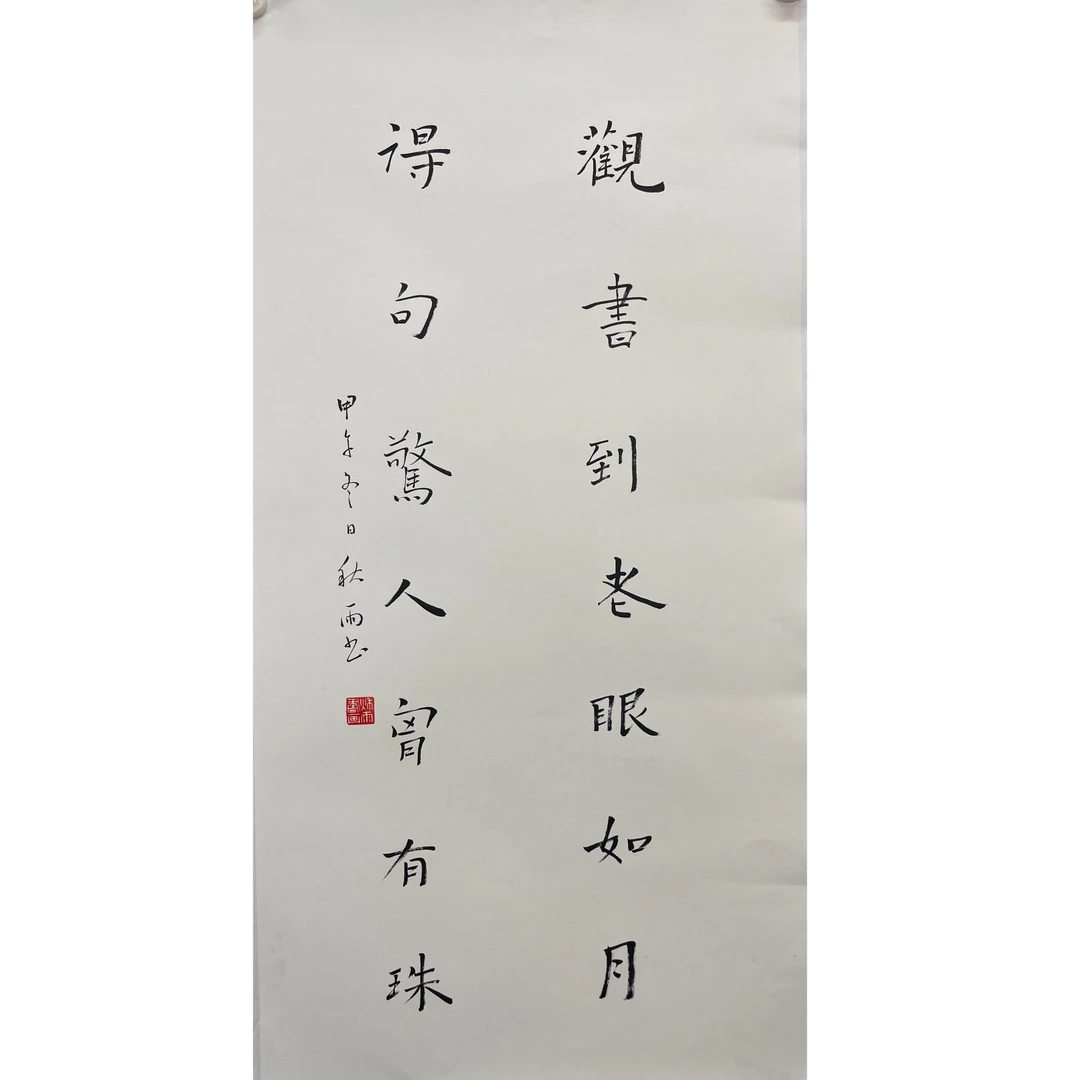 觀書到老眼如月
得句驚人胷有珠
甲午冬日秋雨书